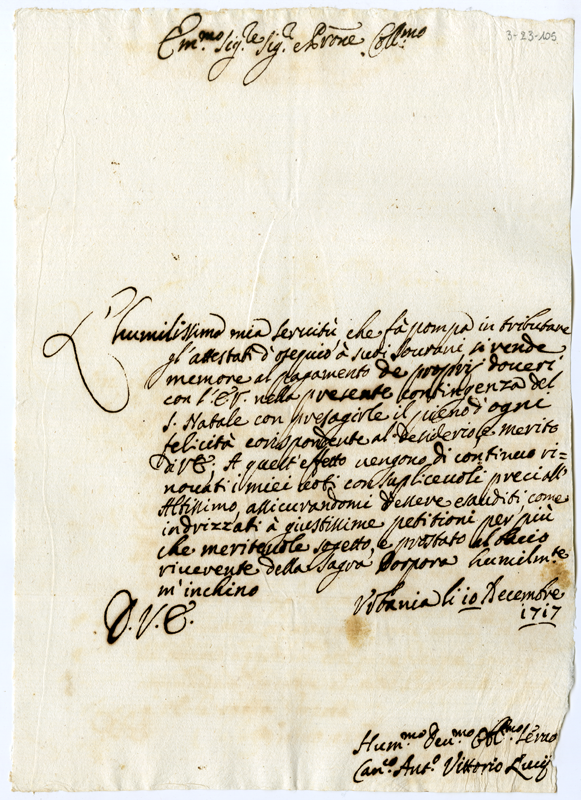 3-23-105
Em.mo Sig.re Sig.r e Prõne Coll.mo
L'humilissima mia servitù che fà pompa in tributare
gl'attestati d'ossequio à suoi sourani si rende
memore al pagamento de proprj doueri
con l'E.V. nella presente contingenza del
S. Natale con presagirle il pieno d'ogni
felicità corrispondente al desiderio e merito
di V.E. A quest'effetto uengono di continuo ri=
nouati i miei uoti con suplicheuoli preci all'
Altissimo, assicurandomi d'essere esauditi come
indrizzati à giustissime petitioni per più
che meriteuole sogetto, e prostato al bacio
riuerente della Sagra Porpora humilm.te
m'inchino
Vrbania li 10 Decembre
1717
D.V.E.
Hum.mo Deu.mo Obl.mo Seruo
Can.co Ant.o Vittorio